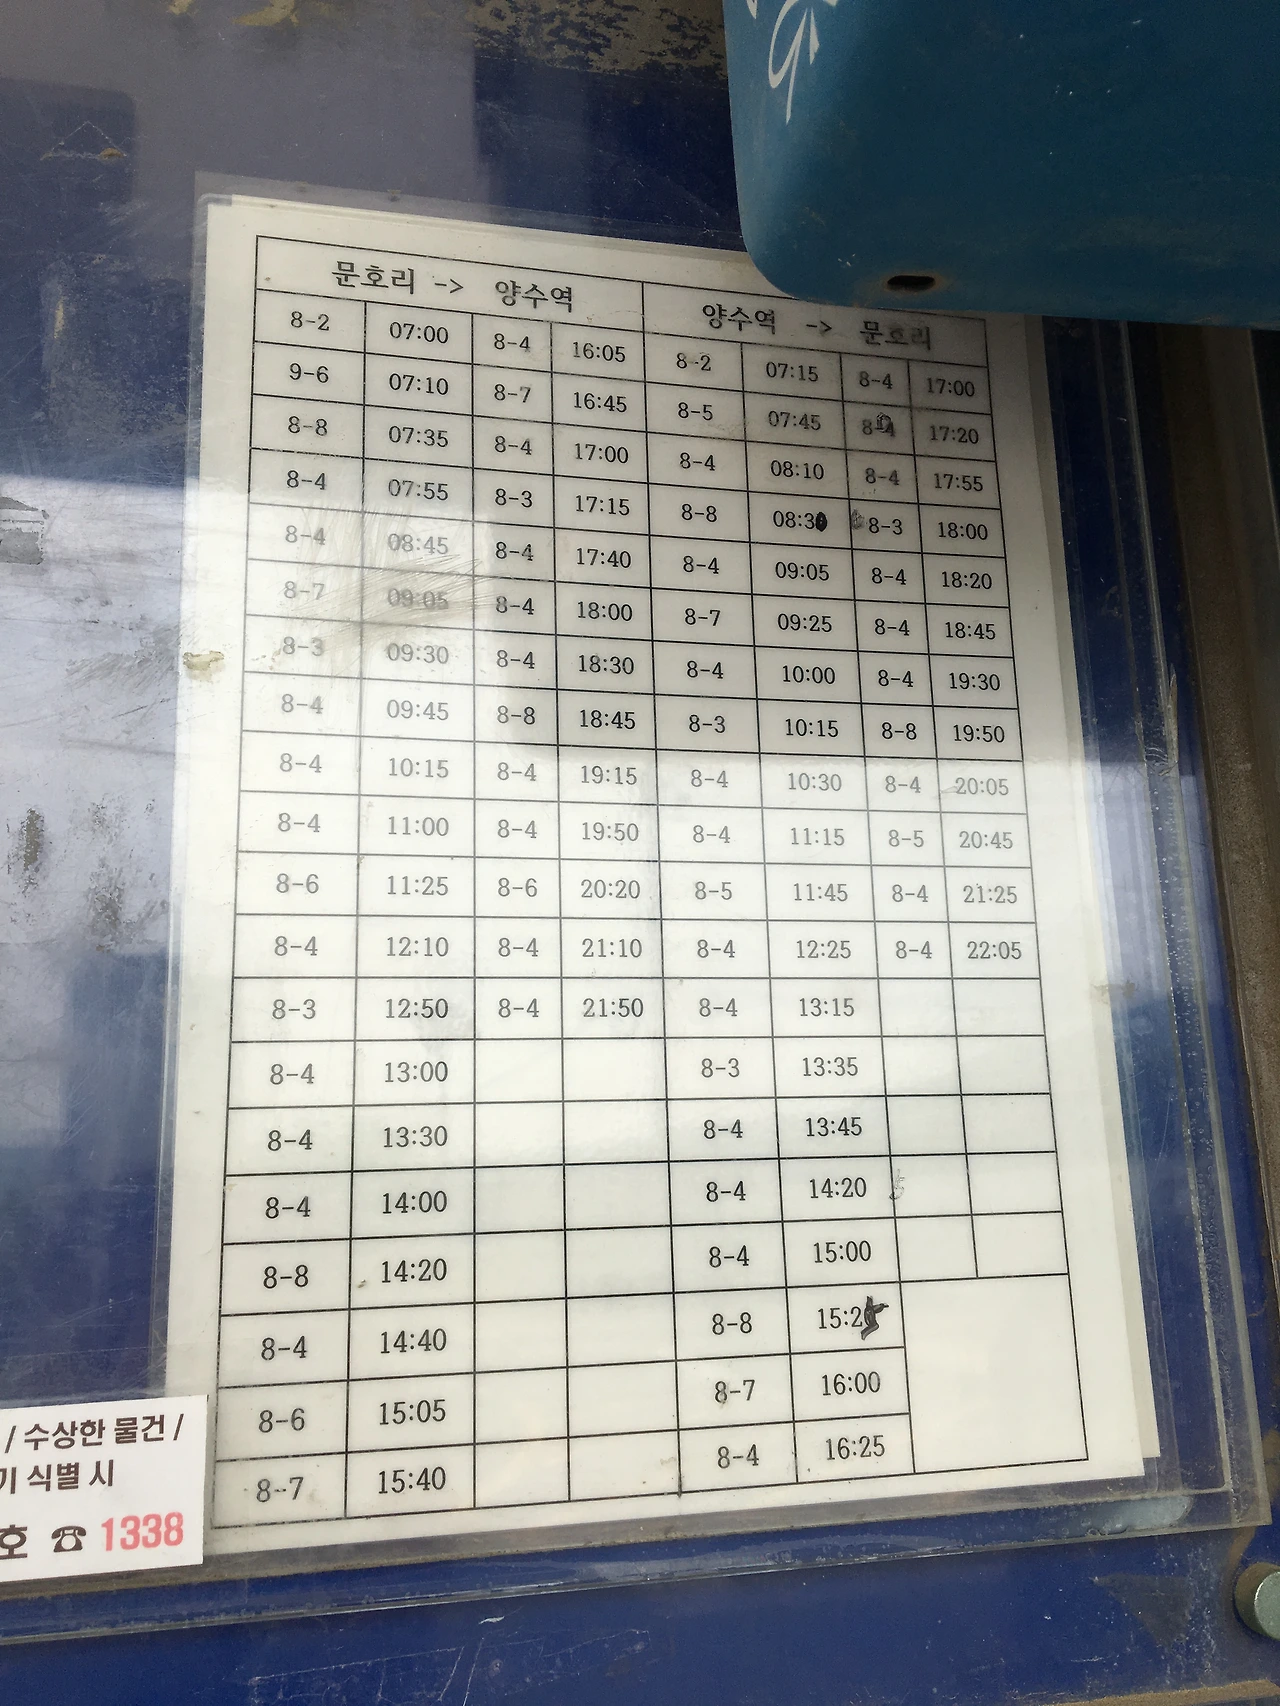 문호리 -> 양수역 양수역 -> 문호리
8-2 07:00 8-4 16:05 8-2 07:15 8-4 17:00
9-6 07:10 8-7 16:45 8-5 07:45 17:20
8-8 07:35 8-4 17:00 8-4 08:10 8-4 17:55
8-4 07:55 8-3 17:15 8-8 08:30 8-3 18:00
8-4 08:45 8-4 17:40 8-4 09:05 8-4 18:20
8-7 09:05 8-4 18:00 8-7 09:25 8-4 18:45
8-3 09:30 8-4 18:30 8-4 10:00 8-4 19:30
8-4 09:45 8-8 18:45 8-3 10:15 8-8 19:50
8-4 10:15 8-4 19:15 8-4 10:30 8-4 20:05
8-4 11:00 8-4 19:50 8-4 11:15 8-5 20:45
8-6 11:25 8-6 20:20 8-5 11:45 8-4 21:25
8-4 12:10 8-4 21:10 8-4 12:25 8-4 22:05
8-3 12:50 8-4 21:50 8-4 13:15
8-4 13:00 8-3 13:35
8-4 13:30 8-4 13:45
8-4 14:00 8-4 14:20
8-8 14:20 8-4 15:00
8-4 14:40 8-8
8-6 15:05 8-7 16:00
8-7 15:40 8-4 16:25
/ 수상한 물건 /
기 식별 시
호 ☎ 1338